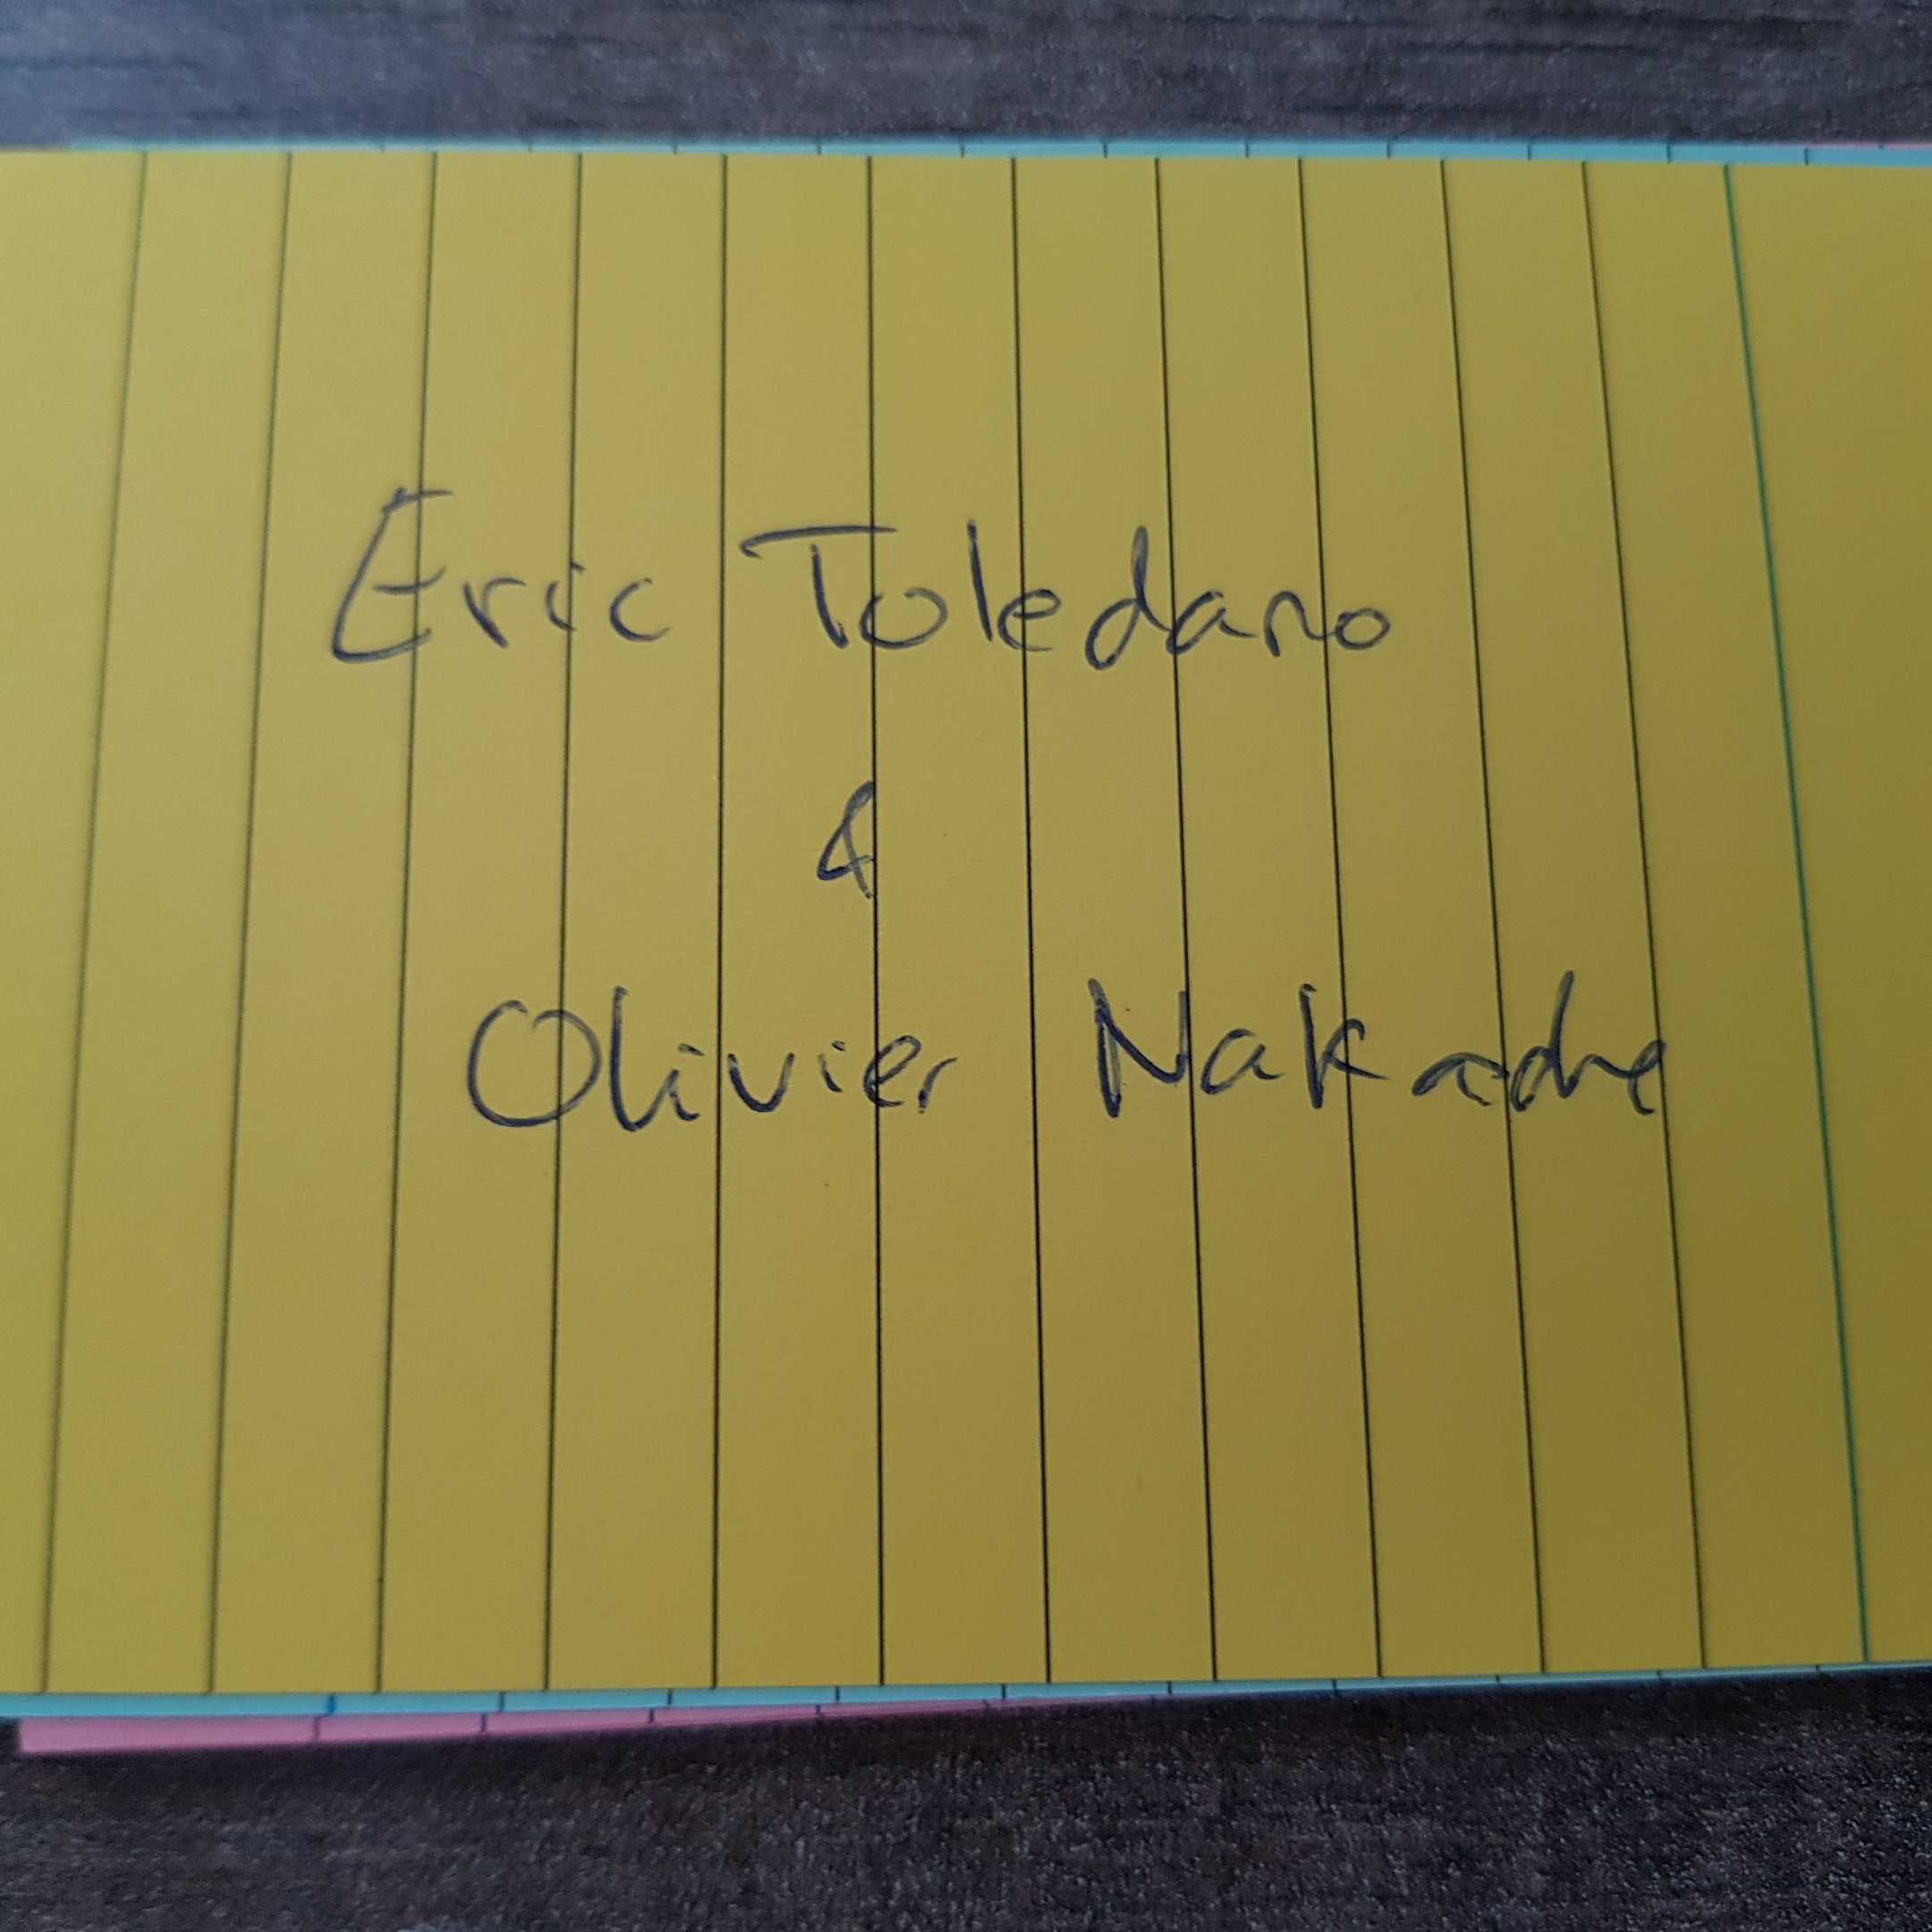 Eric Toledano
&
Olivier Nakache